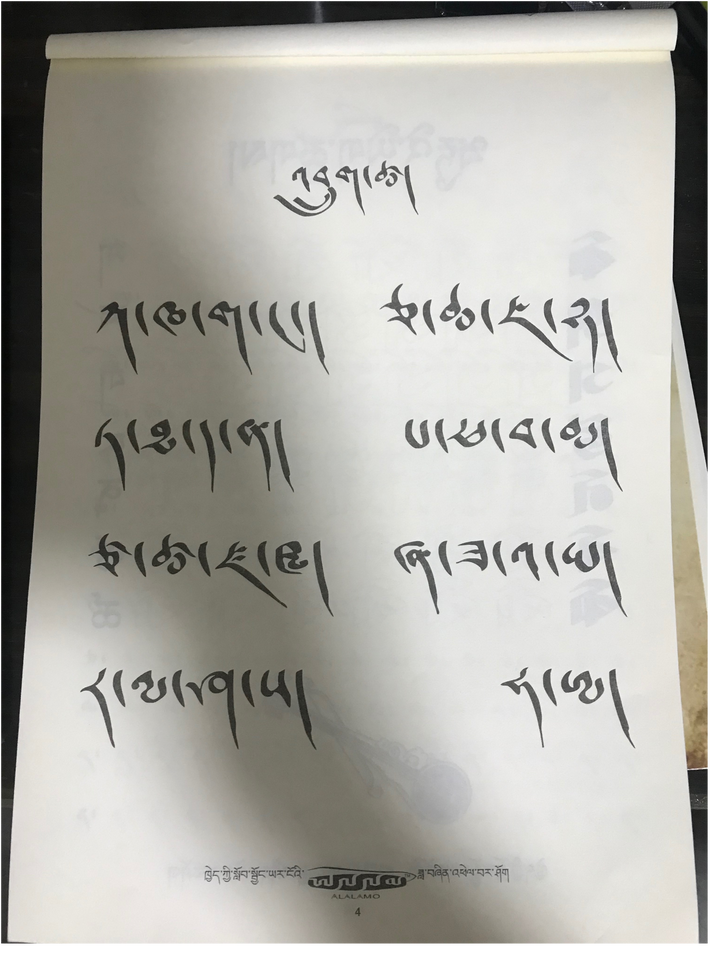 འབྲུག་ཚ།
ཀ་ཁ་ག་ང་། ཅ་ཆ་ཇ་ཉ།
ཏ་ཐ་ད་ན། པ་ཕ་བ་མ།
ཙ་ཚ་ཛ་ཝ། ཞ་ཟ་འ་ཡ།
ར་ལ་ཤ་ས། ཧ་ཨ།
ཁྱེད་ཀྱི་སློབ་སྦྱོང་ཡར་ངོའི་ ཟླ་བཞིན་འཕེལ་བར་ཤོག
ALALAMO
4